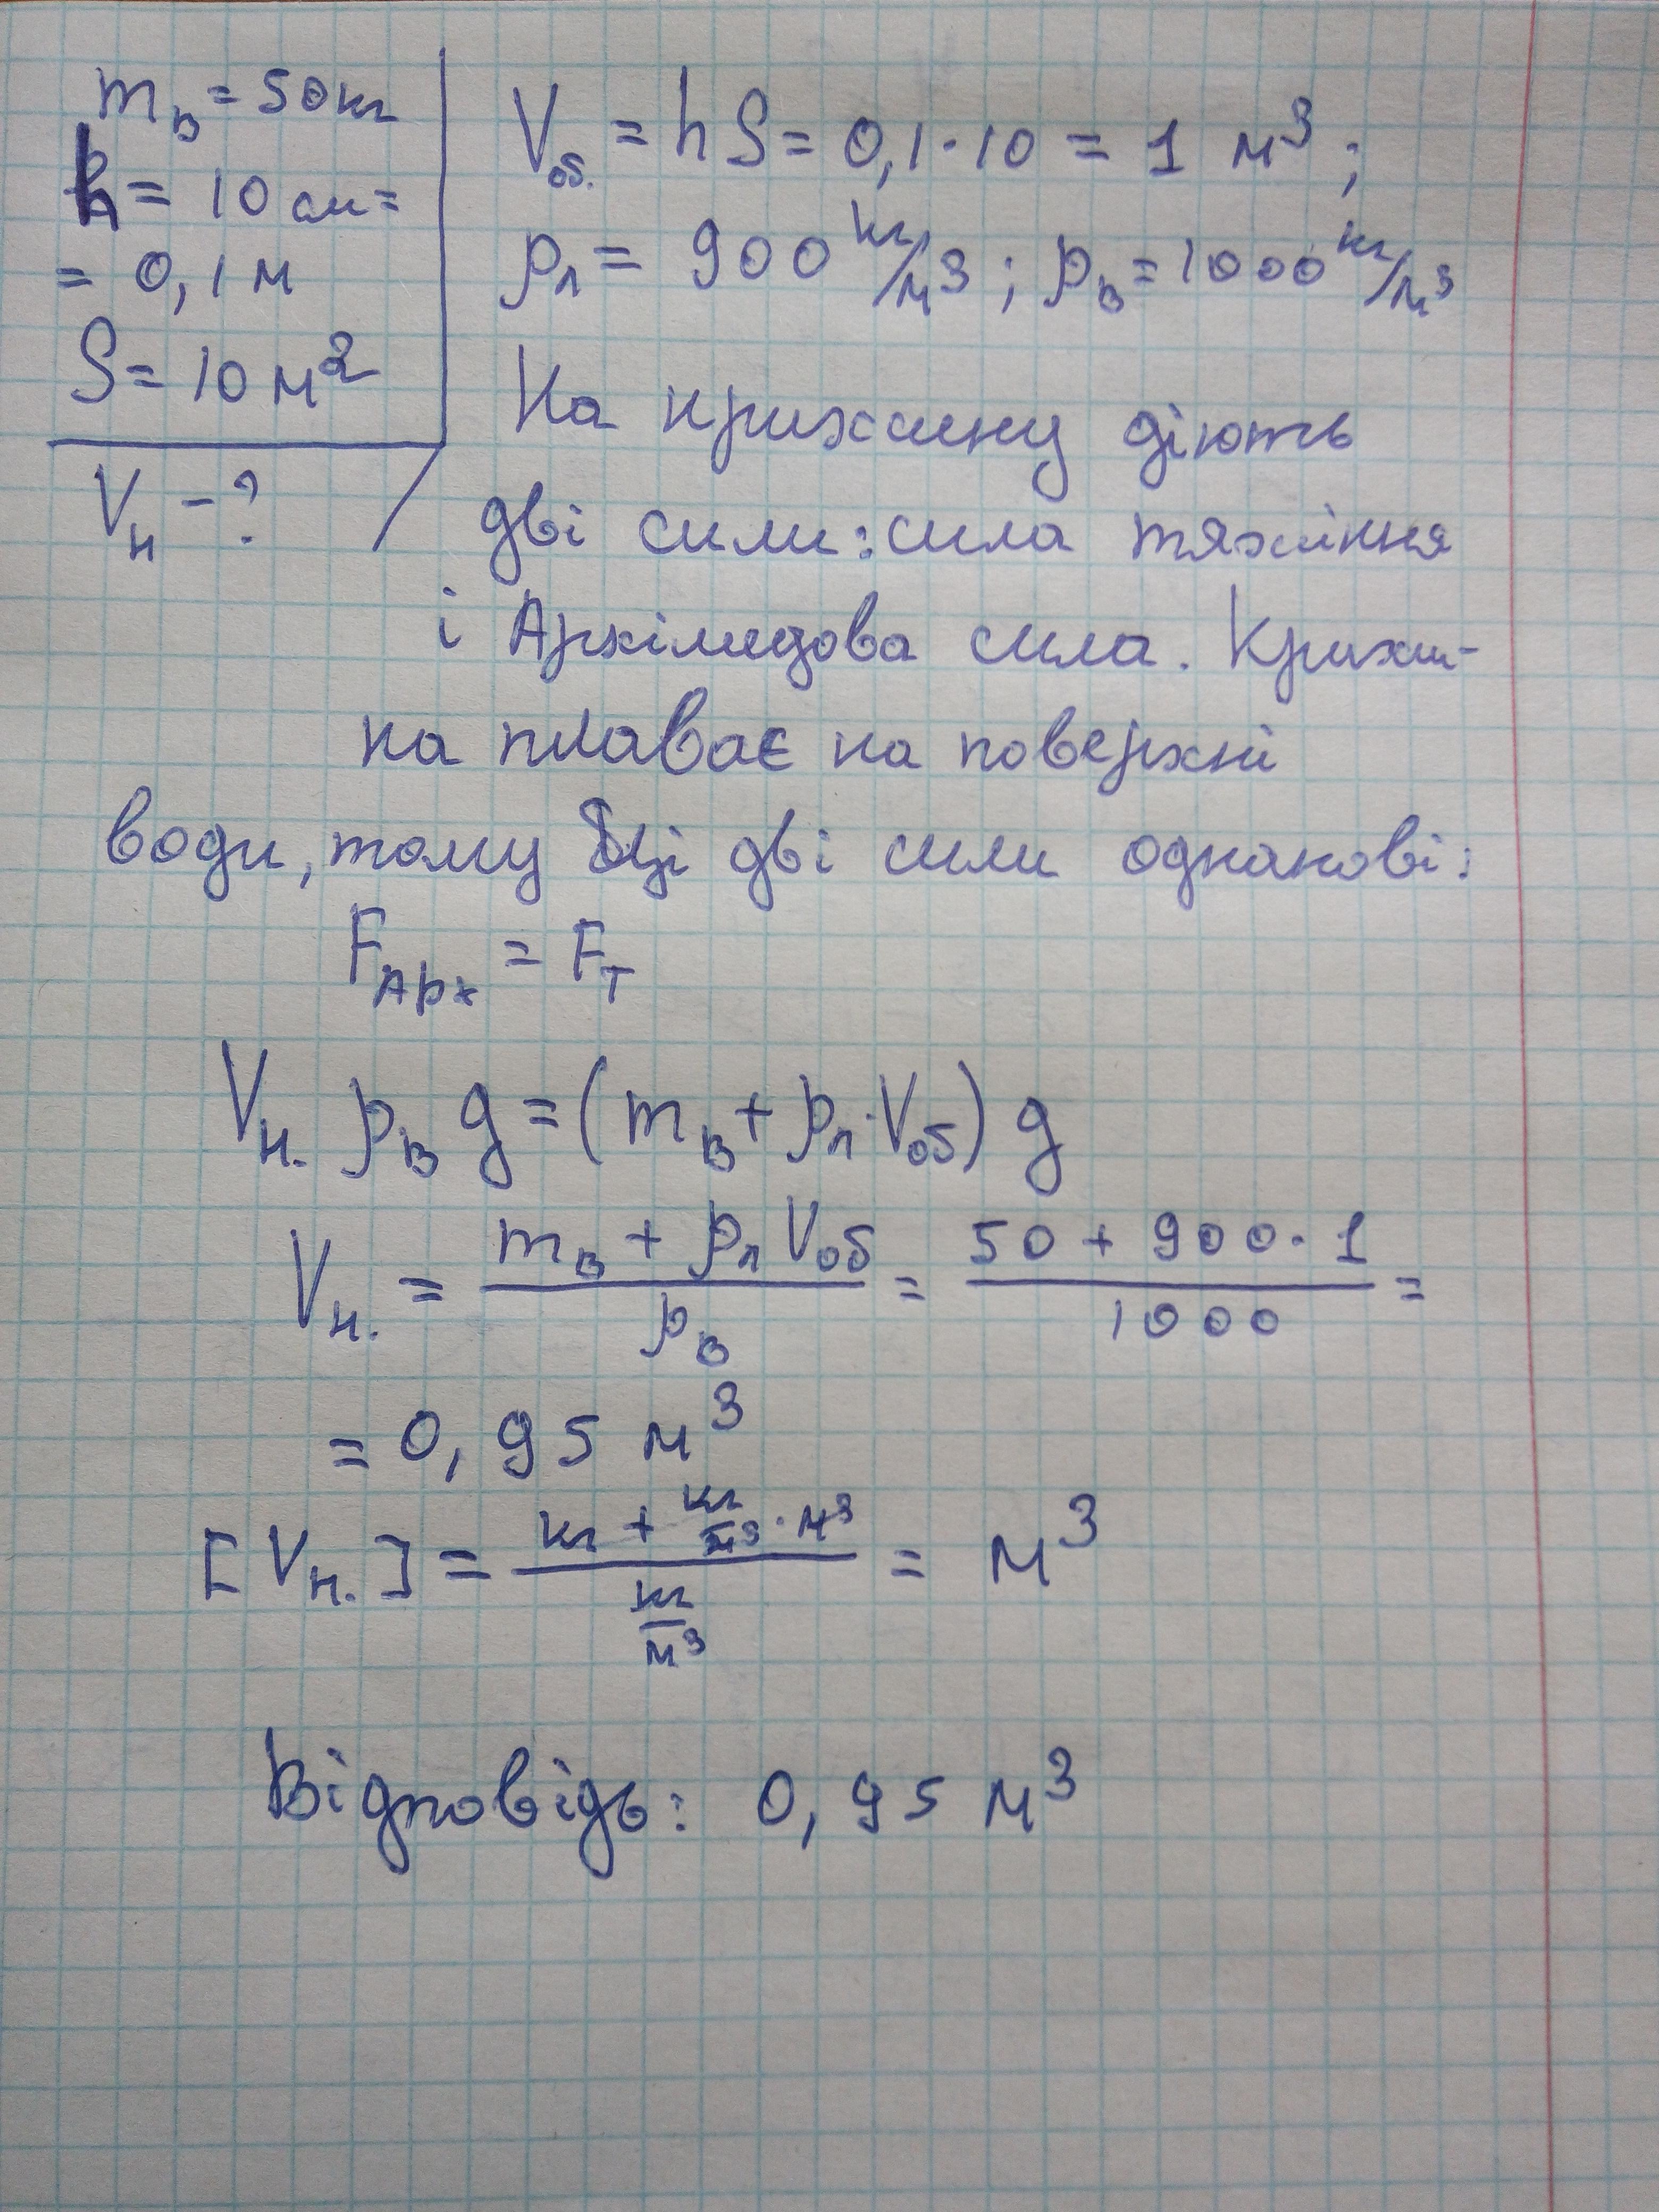 m_в = 50 кг
h = 10 см =
= 0,1 м
S = 10 м²
V_н - ?
V_об. = hS = 0,1·10 = 1 м³;
ρ_л = 900 кг/м³; ρ_в = 1000 кг/м³
На крижину діють
дві сили: сила тяжіння
і Архімедова сила. Крижи-
на плаває на поверхні
води, тому ці дві сили однакові:
F_Арх = F_т
V_н. ρ_в g = (m_в + ρ_л·V_об) g
V_н. = (m_в + ρ_л V_об) / ρ_в = (50 + 900·1) / 1000 =
= 0,95 м³
[V_н.] = (кг + кг/м³ · м³) / (кг/м³) = м³
Відповідь: 0,95 м³